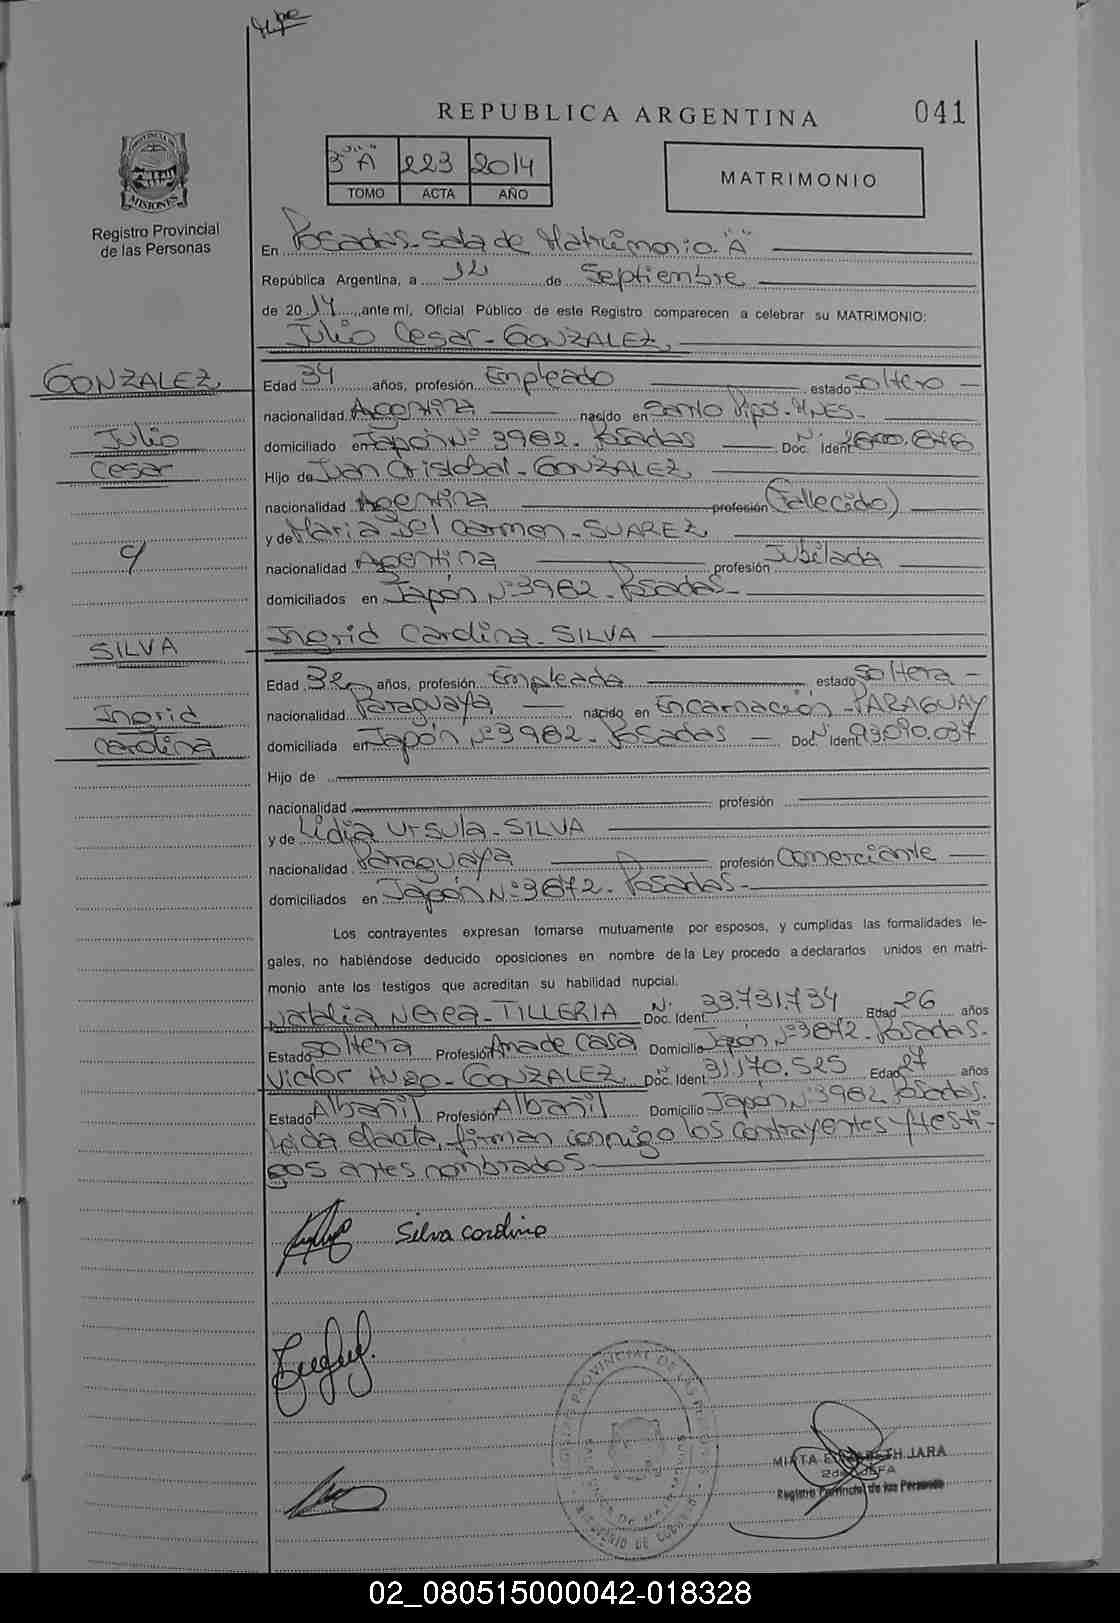 REPUBLICA ARGENTINA
041
3º "A" 223 2014
TOMO ACTA AÑO
MATRIMONIO
PROVINCIA DE
MISIONES
Registro Provincial
de las Personas
En Posadas-Sala de Matrimonio "A"
República Argentina, a 12 de Septiembre
de 2014, ante mí, Oficial Público de este Registro comparecen a celebrar su MATRIMONIO:
Julio Cesar - GONZALEZ,
GONZALEZ,
Julio
Cesar
c/
SILVA
Ingrid
Carolina
Edad 34 años, profesión Empleado estado soltero
nacionalidad Argentina nacido en Cerro MNES-
domiciliado en Japón Nº 3982- Posadas Doc. Ident. Nº
Hijo de Juan Cristobal - GONZALEZ,
nacionalidad Argentina profesión (Fallecido)
y de Maria del Carmen - SUAREZ
nacionalidad Argentina profesión Jubilada
domiciliados en Japón Nº 3982- Posadas-
Ingrid Carolina - SILVA
Edad 32 años, profesión Empleada estado soltera
nacionalidad Paraguaya nacido en Encarnación - PARAGUAY
domiciliada en Japón Nº 3982- Posadas Doc. Ident. Nº 93.090.037
Hijo de
nacionalidad profesión
y de Lidia Ursula - SILVA
nacionalidad Paraguaya profesión Comerciante
domiciliados en Japón Nº 3872- Posadas-
Los contrayentes expresan tomarse mutuamente por esposos, y cumplidas las formalidades le-
gales, no habiéndose deducido oposiciones en nombre de la Ley procedo a declararlos unidos en matri-
monio ante los testigos que acreditan su habilidad nupcial.
Natalia Nerea - TILLERIA Doc. Ident. Nº 33.731.734 Edad 26 años
Estado soltera Profesión Ama de casa Domicilio Japón Nº 3872- Posadas-
Victor Hugo - GONZALEZ, Doc. Ident. Nº 31.170.525 Edad 27 años
Estado Albañil Profesión Albañil Domicilio Japón Nº 3982 Posadas.
Leida el acta, firman conmigo los contrayentes y testi-
gos antes nombrados-
Silva carolina
MIRTA ELIZABETH JARA
2da JEFA
Registro Provincial de las Personas
02_080515000042-018328